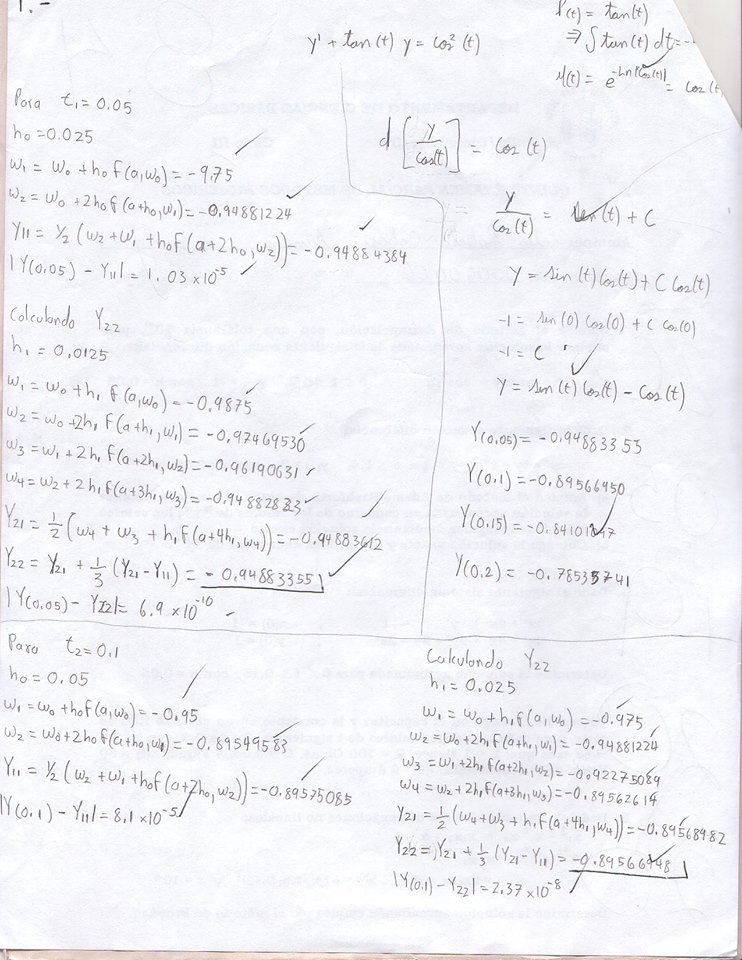 1.-
y' + tan(t) y = cos²(t)
P(t) = tan(t)
⇒ ∫ tan(t) dt = --
μ(t) = e^{-Ln|cos(t)|} = cos(t
Para t₁ = 0.05
h0 = 0.025
w₁ = w₀ + h₀ f(a,w₀) = -9,75
w₂ = w₀ + 2h₀ f(a+h₀,w₁) = -0.94881224
Y₁₁ = 1/2 (w₂ + w₁ + h₀ f(a+2h₀,w₂)) = -0.94884384
|Y(0.05) - Y₁₁| = 1.03 x10⁻⁵
Calculando Y₂₂
h₁ = 0.0125
w₁ = w₀ + h₁ f(a,w₀) = -0.9875
w₂ = w₀ + 2h₁ f(a+h₁,w₁) = -0.97469530
w₃ = w₁ + 2h₁ f(a+2h₁,w₂) = -0.96190631
w₄ = w₂ + 2h₁ f(a+3h₁,w₃) = -0.94882883
Y₂₁ = 1/2 (w₄ + w₃ + h₁ f(a+4h₁,w₄)) = -0.94883612
Y₂₂ = Y₂₁ + 1/3 (Y₂₁ - Y₁₁) = -0.94883355
|Y(0.05) - Y₂₂| = 6.9 x10⁻¹⁰
d [y/cos(t)] = cos(t)
= y/cos(t) = sen(t) + C
y = sin(t) cos(t) + C cos(t)
-1 = sin(0) cos(0) + C cos(0)
-1 = C
y = sin(t) cos(t) - cos(t)
Y(0.05) = -0.94883355
Y(0.1) = -0.89566450
Y(0.15) =
Y(0.2) = -0.78535741
Para t₂ = 0.1
h0 = 0.05
w₁ = w₀ + h₀ f(a,w₀) = -0.95
w₂ = w₀ + 2h₀ f(a+h₀,w₁) = -0.89549583
Y₁₁ = 1/2 (w₂ + w₁ + h₀ f(a+2h₀,w₂)) = -0.89575085
|Y(0.1) - Y₁₁| = 8,1 x10⁻⁵
Calculando Y₂₂
h₁ = 0.025
w₁ = w₀ + h₁ f(a,w₀) = -0.975
w₂ = w₀ + 2h₁ f(a+h₁,w₁) = -0.94881224
w₃ = w₁ + 2h₁ f(a+2h₁,w₂) = -0.92275089
w₄ = w₂ + 2h₁ f(a+3h₁,w₃) = -0.89562614
Y₂₁ = 1/2 (w₄ + w₃ + h₁ f(a+4h₁,w₄)) = -0.89568982
Y₂₂ = Y₂₁ + 1/3 (Y₂₁ - Y₁₁) = -0.89566948
|Y(0.1) - Y₂₂| = 2.37 x10⁻⁸